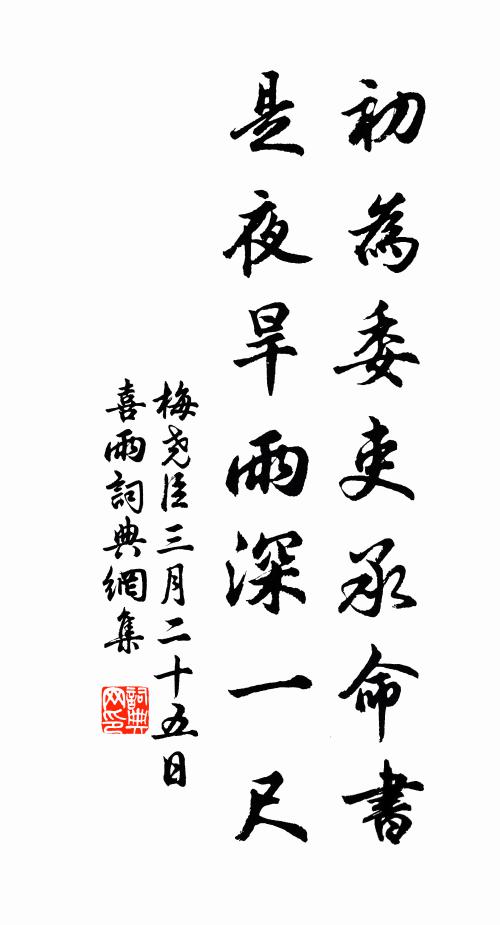 初為委吏承命書
是夜旱雨深一尺
梅尧臣三月二十五日
喜雨詞典網集
詞典
网印